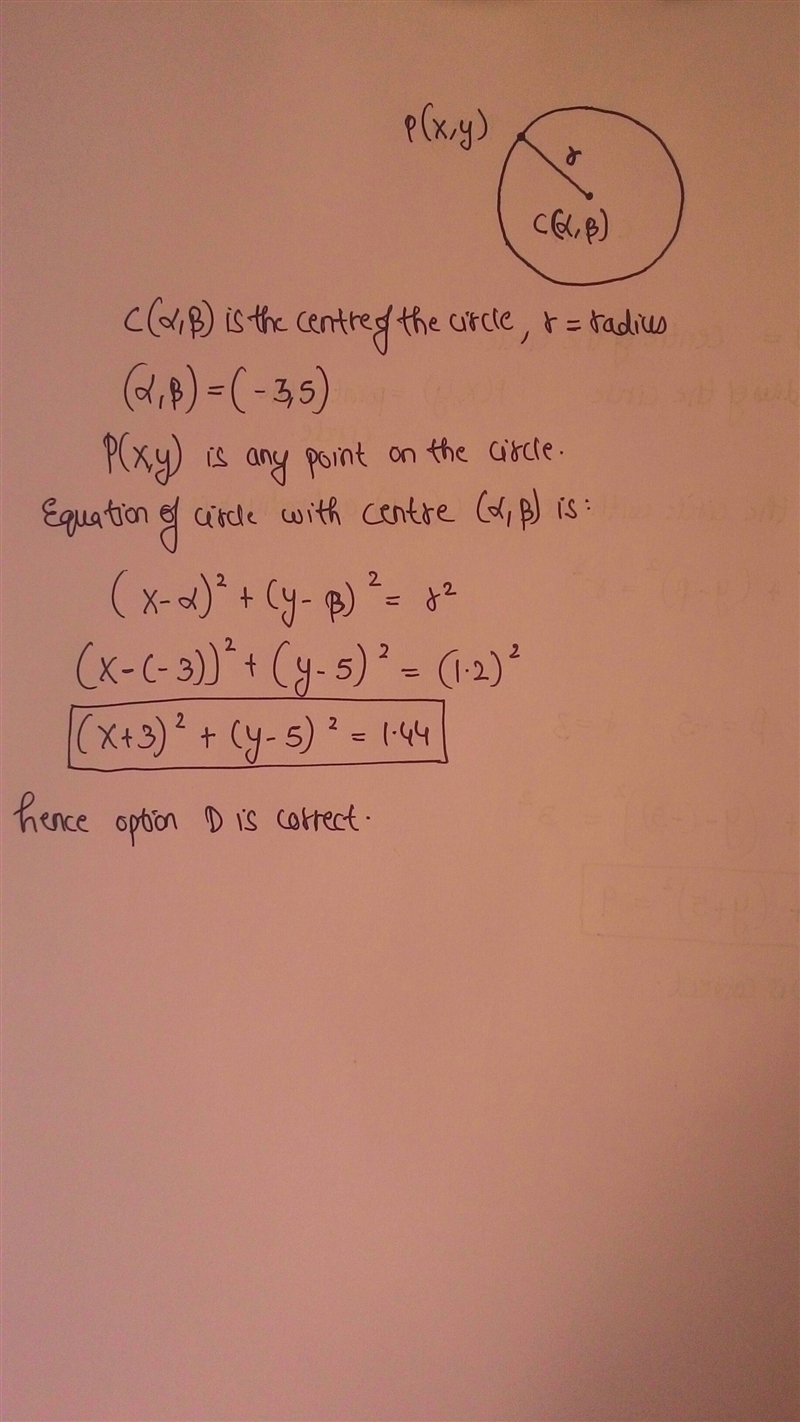 P(x,y)
r
C(α,β)
C(α,β) is the centre of the circle, r = radius
(α,β) = (-3,5)
P(x,y) is any point on the circle.
Equation of circle with centre (α,β) is:
(x-α)² + (y-β)² = r²
(x-(-3))² + (y-5)² = (1.2)²
(x+3)² + (y-5)² = 1.44
hence option D is correct.